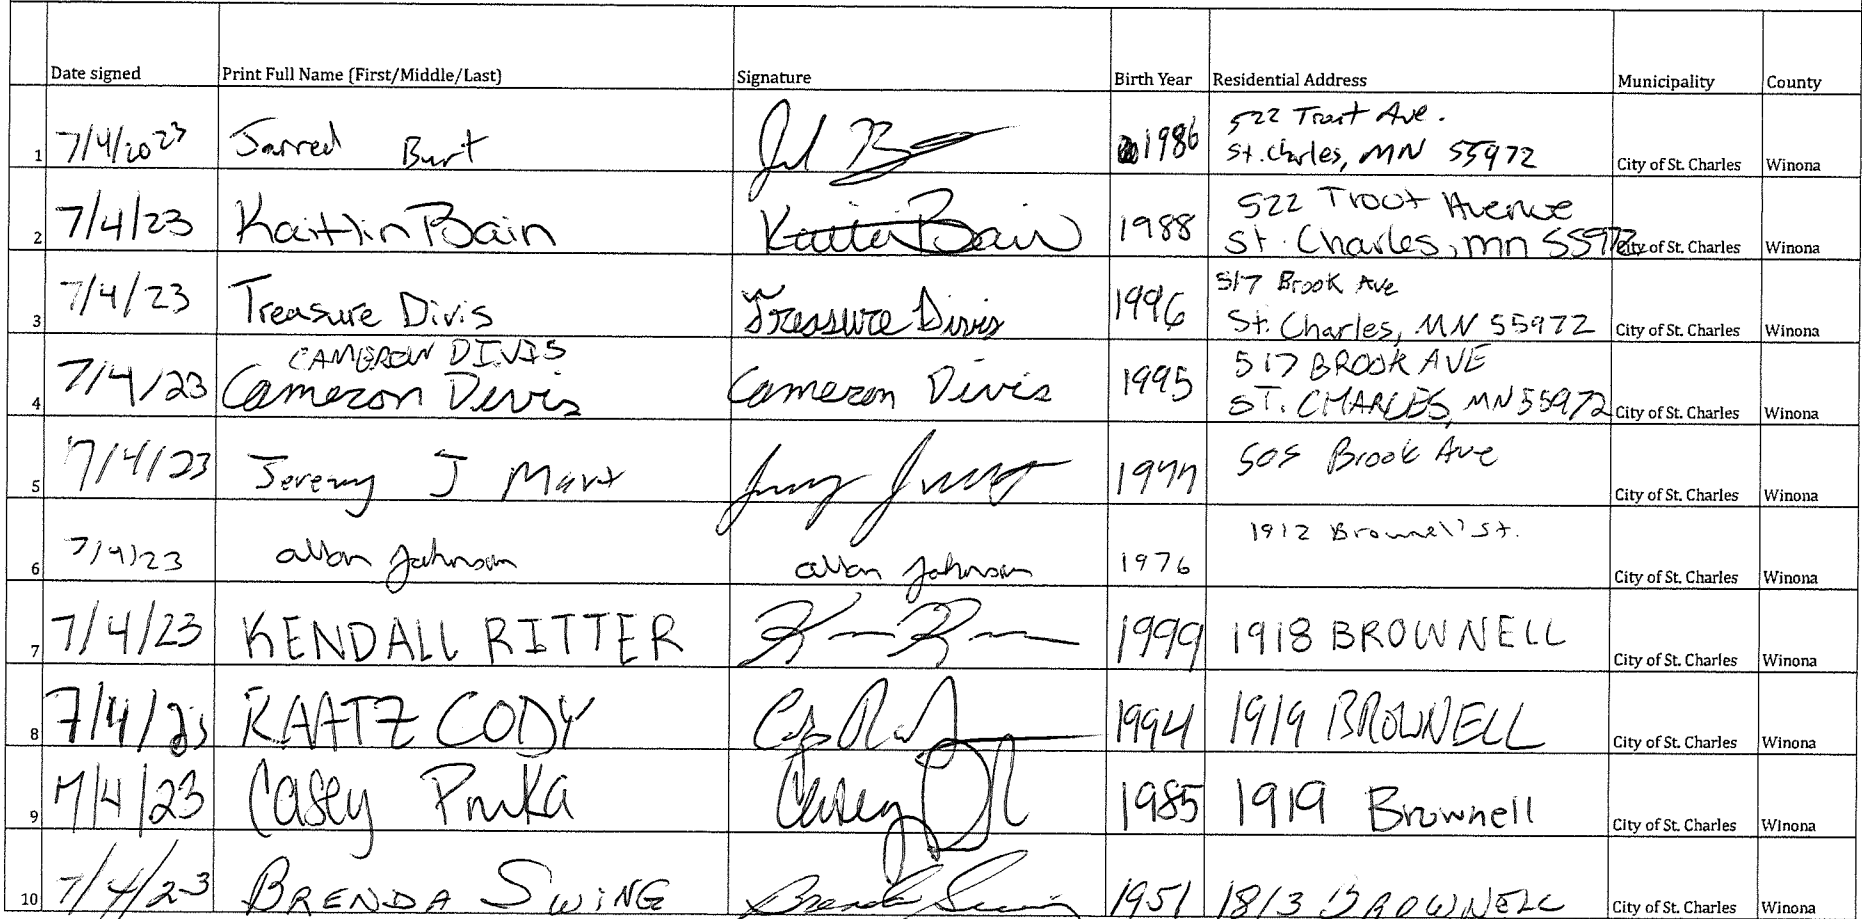 Date signed Print Full Name (First/Middle/Last) Signature Birth Year Residential Address Municipality County
1 7/4/2023 Jarred Burt 1986 522 Trout Ave.
St. Charles, MN 55972 City of St. Charles Winona
2 7/4/23 Kaitlin Bain Kaitlin Bain 1988 522 Trout Avenue
St. Charles, mn 55972 City of St. Charles Winona
3 7/4/23 Treasure Divis Treasure Divis 1996 517 Brook Ave
St. Charles, MN 55972 City of St. Charles Winona
CAMERON DIVIS 517 BROOK AVE
4 7/4/23 Cameron Divis Cameron Divis 1995 ST. CHARLES, MN 55972 City of St. Charles Winona
5 7/4/23 Jeremy J 1977 505 Brook Ave City of St. Charles Winona
6 7/4/23 allan Johnson allan Johnson 1976 1912 Brownell St. City of St. Charles Winona
7 7/4/23 KENDALL RITTER 1999 1918 BROWNELL City of St. Charles Winona
8 7/4/23 RAATZ CODY 1994 1919 BROWNELL City of St. Charles Winona
9 7/4/23 Casey Casey 1985 1919 Brownell City of St. Charles Winona
10 7/4/23 BRENDA SWING Brenda Swing 1951 1813 BROWNELL City of St. Charles Winona